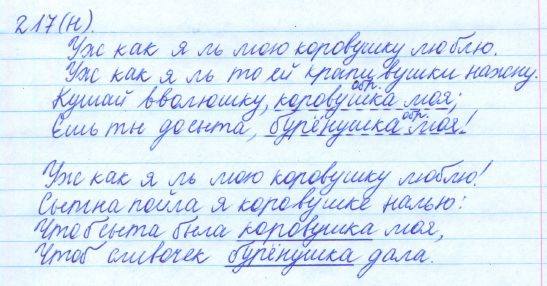 217(н).
Уж как я ль мою коровушку люблю.
Уж как я ль то ей крапивушки нажну.
обр.
Кушай вволюшку, коровушка моя;
обр.
Ешь ты досыта, бурёнушка моя!
Уж как я ль мою коровушку люблю!
Сытна пойла я коровушке налью:
Чтоб сыта была коровушка моя,
Чтоб сливочек бурёнушка дала.